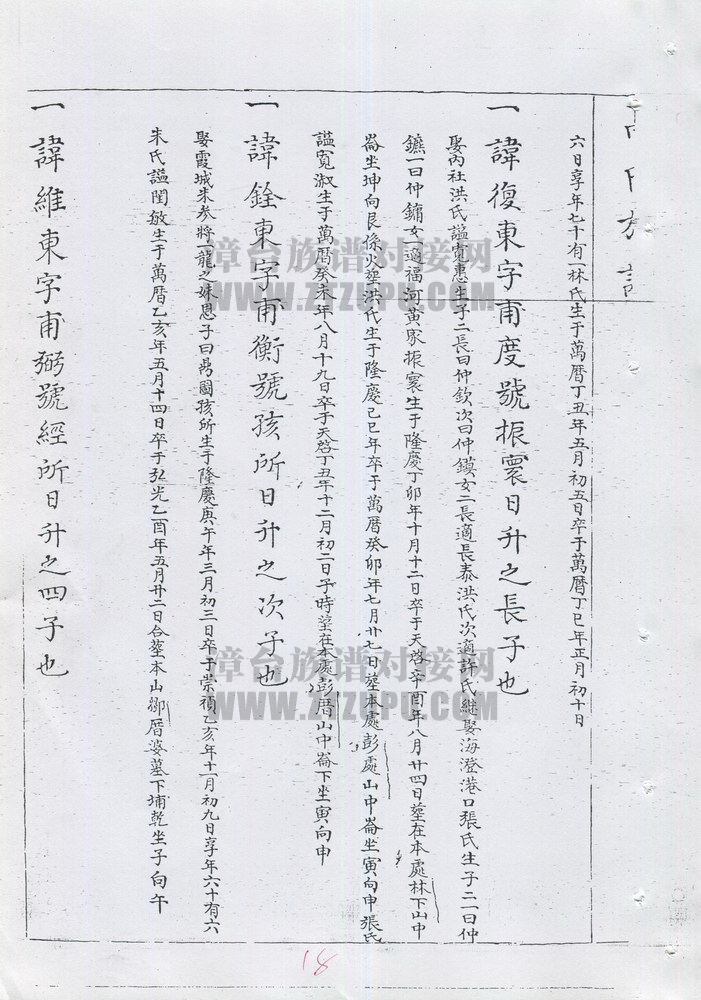 六日享年七十有一林氏生于萬曆丁丑年五月初五日卒于萬曆丁巳年正月初十日
一諱復東字甫度號振寰日升之長子也
娶丙社洪氏謚寬惠生子二長曰仲欽次曰仲鏌女二長適長泰洪氏次適許氏繼娶海澄港口張氏生子二一曰仲
鑣一曰仲鏞女一適福河黃家振寰生于隆慶丁卯年十月十二日卒于天啓辛酉年八月廿四日塟在本處林下山中
崙坐坤向艮係火塟洪氏生于隆慶己巳年卒于萬曆癸卯年七月廿七日塟本處彭處山中崙坐寅向申張氏
謚寬淑生于萬曆癸未年八月十九日卒于天啓丁丑年十二月初二日子時塟在本處彭厝山中崙下坐寅向申
一諱銓東字甫衡號孩所日升之次子也
娶霞城朱參將一龍之妹恩子曰昺國孩所生于隆慶庚午年三月初三日卒于崇禎乙亥年十一月初九日享年六十有六
朱氏謚閨敏生于萬曆乙亥年五月十四日卒于弘光乙酉年五月廿二日合塟本山鄉厝婆墓下埔乾坐子向午
一諱維東字甫弼號經所日升之四子也
18
漳台族谱对接网
WWW.ZTZUPU.COM
漳台族谱对接网
WWW.ZTZUPU.COM